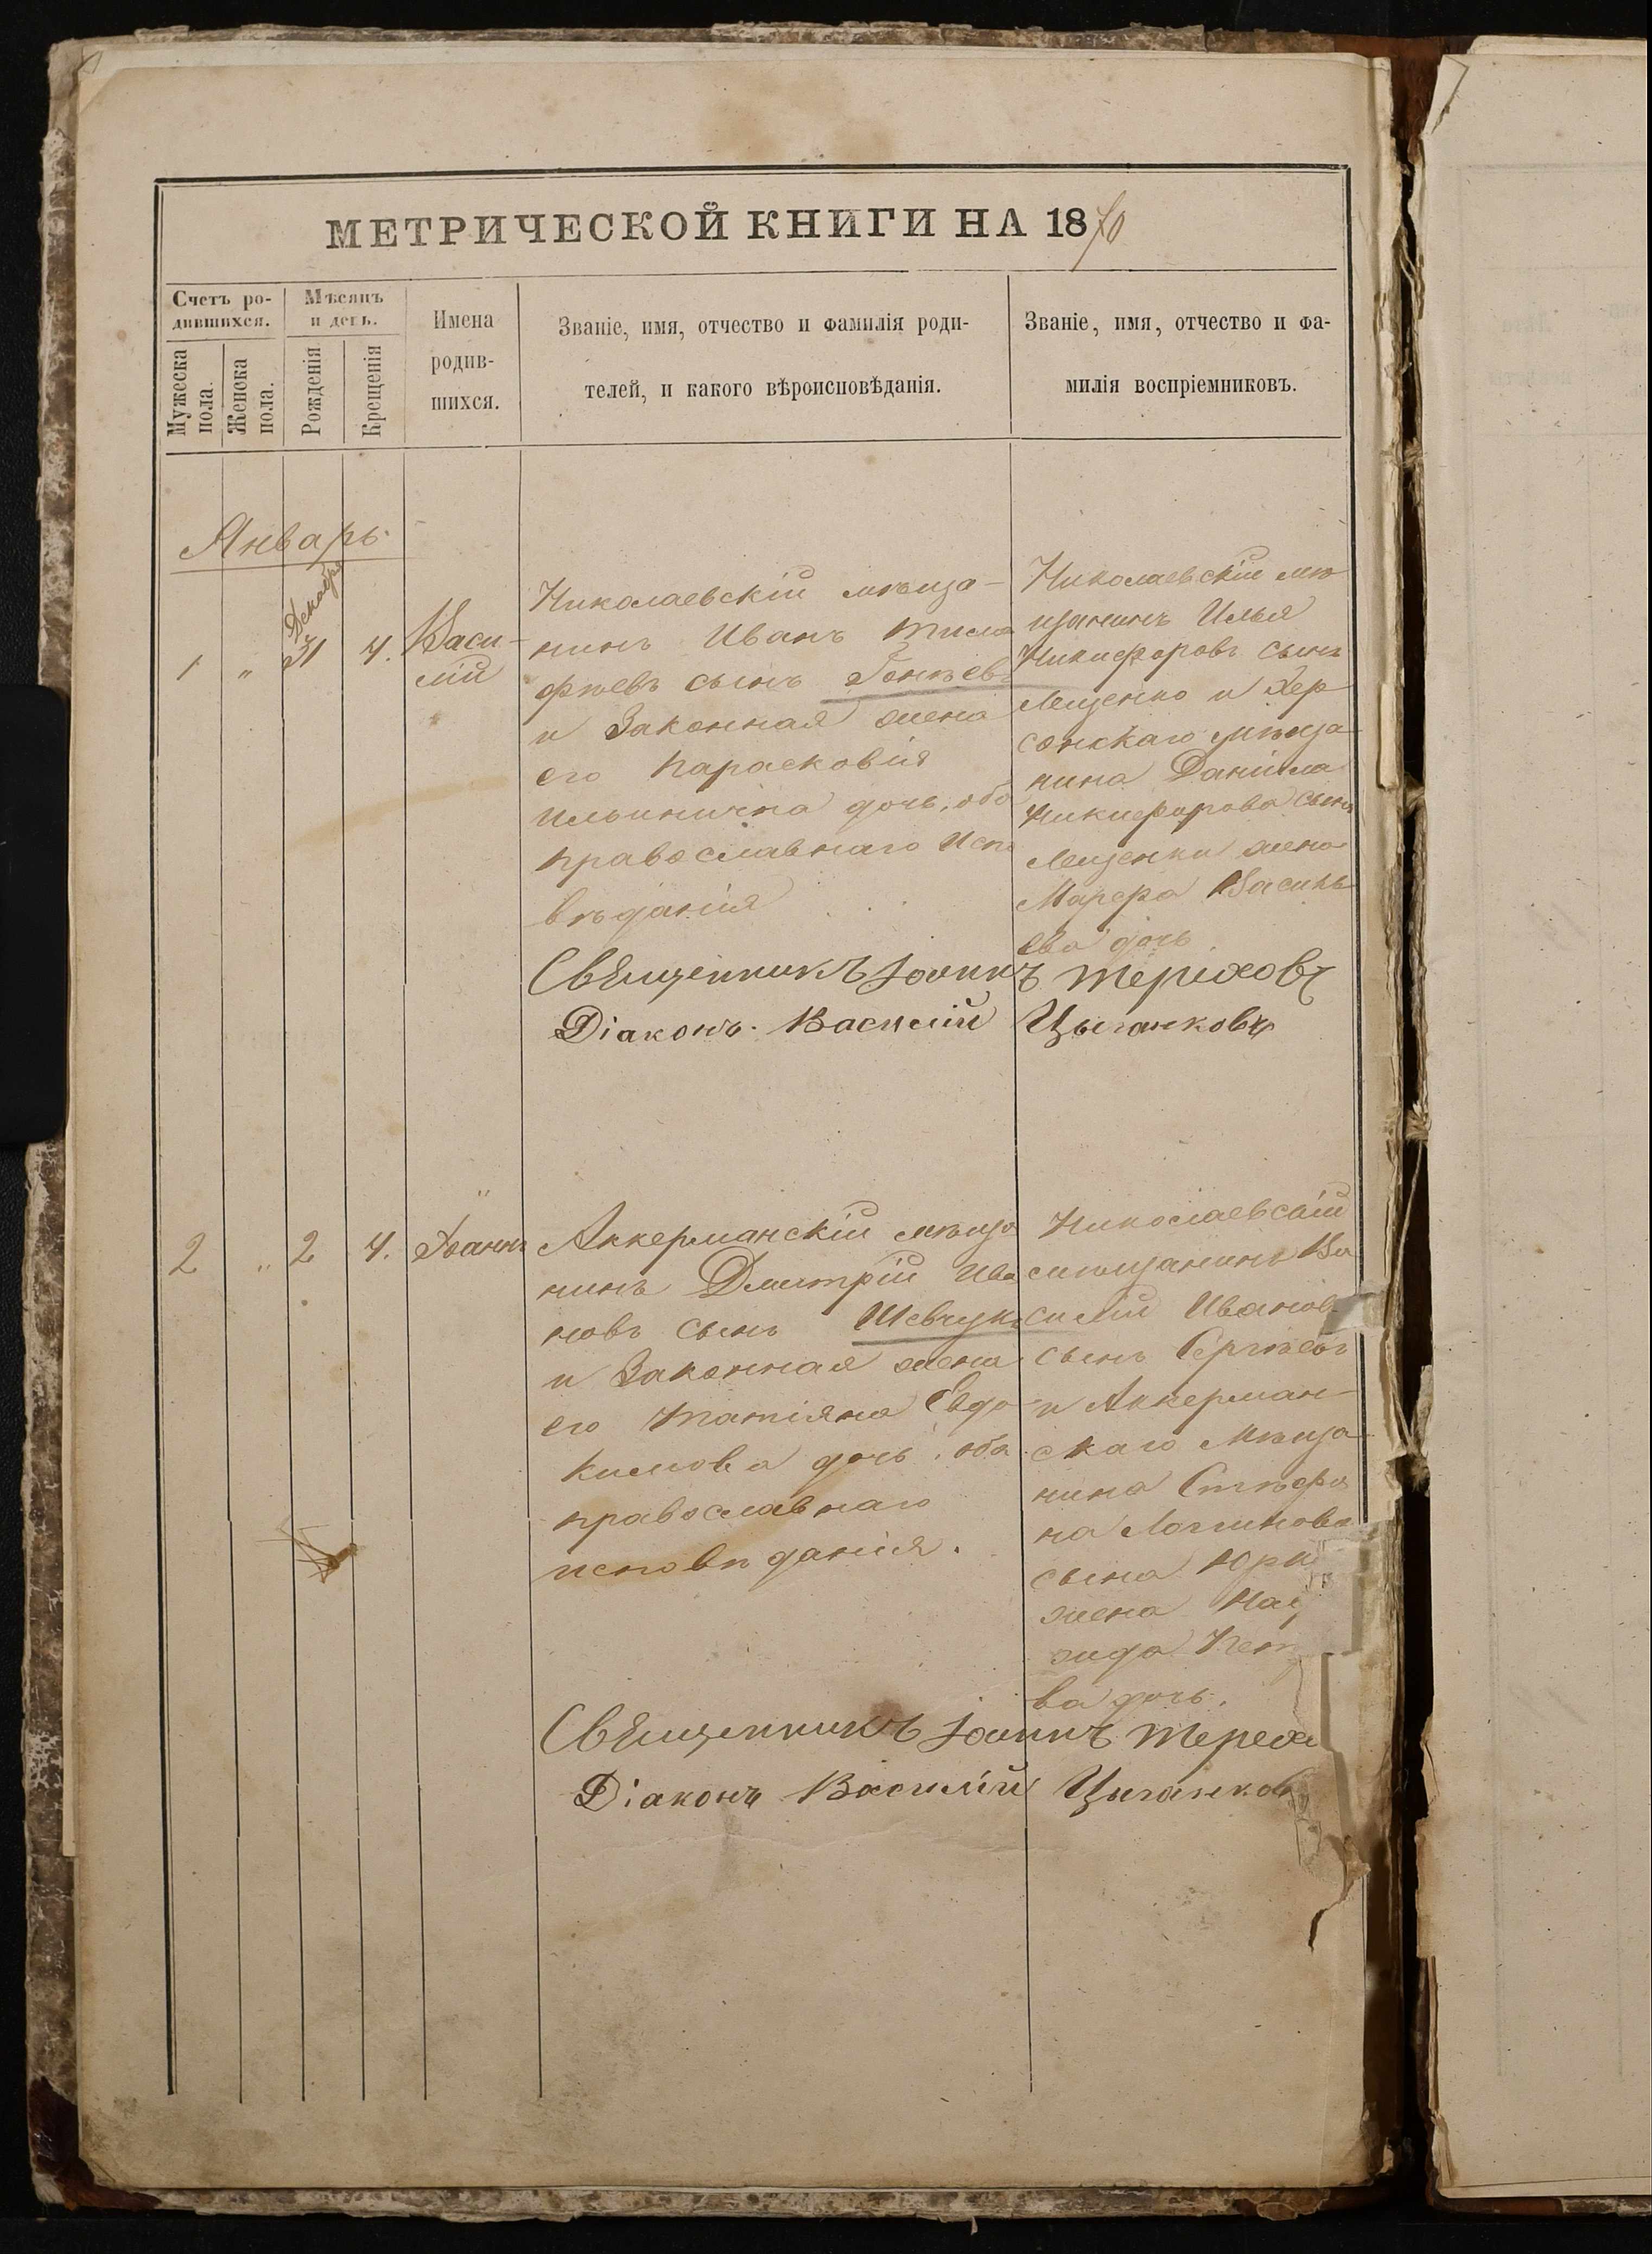 МЕТРИЧЕСКОЙ КНИГИ НА 1870
Счетъ ро-
дившихся.
Мужеска
пола.
Женска
пола.
Мѣсяцъ
и день.
Рожденія
Крещенія
Имена
родив-
шихся.
Званіе, имя, отчество и фамилія роди-
телей, и какого вѣроисповѣданія.
Званіе, имя, отчество и фа-
милія воспріемниковъ.
Январь
Декабря
1 " 31 4.
Васи-
лій
Николаевскій мѣща-
нинъ Иванъ Тимо
фѣевъ сынъ
и Законная жена
его Парасковія
Ильинична дочь, оба
православнаго Испо
вѣданія
Николаевскій мѣ
щанинъ Илья
Никифоровъ сынъ
Лещенко и Хер
сонскаго мѣща
нина Даніила
Никифорова сына
Лещенки жена
Марфа Василь
ева дочь.
Священникъ Іоаннъ Тереховъ
Діаконъ Василій Цыганковъ
2 " 2 4. Іоаннъ
Аккерманскій мѣща
нинъ Дмитрій Ива
новъ сынъ Шевчукъ
и Законная жена
его Татіяна Евдо
кимова дочь, оба
православнаго
исповѣданія.
Николаевскій
мѣщанинъ Ва
силій Ивановъ
сынъ Сергѣевъ
и Аккерман-
скаго Мѣща
нина Стефа
на Логгинова
сына
жена
ва дочь.
Священникъ Іоаннъ Терехо
Діаконъ Василій Цыганков